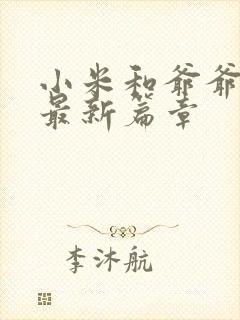 小米和爷爷
最新篇章
李沐航